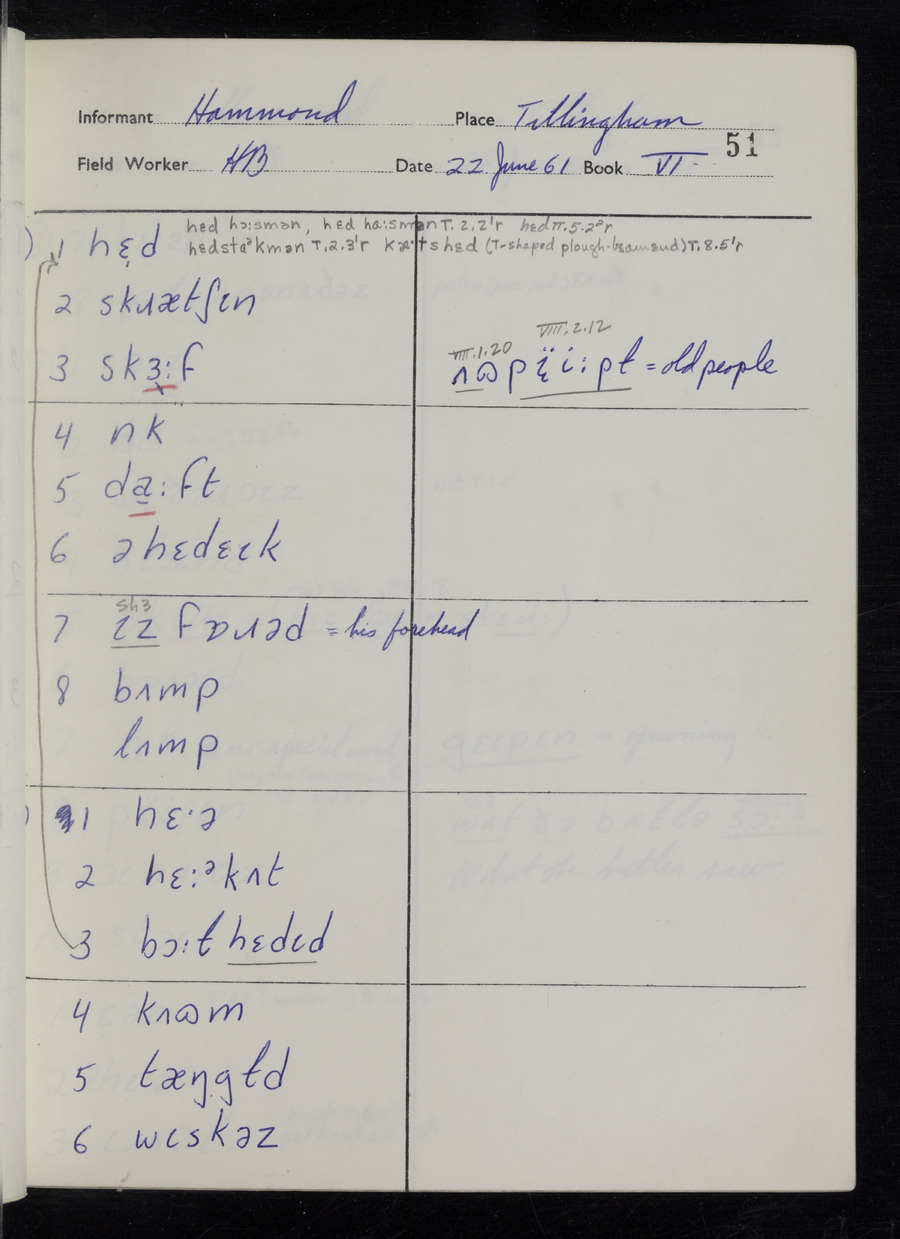 Informant Hammond Place Tillingham
51
Field Worker HB Date 22 June 61 Book VI
hɛd hɔ:smən, hɛd ha:smən T.2.2'r hɛd
1 hɛ̣d hɛdstaᵊkmən T.2.3'r hɛd (T-shaped plough-beam end) T.8.5'r
2 skɹætʃɩn
VIII.1.20 VIII.2.12
3 skɜ:f = old people
4 nk
5 da̱:ft
6 əhɛdɛɩk
sh3
7 ɩz fɒɹəd = his forehead
8 bʌmp
lʌmp
1 hɛ:ə
2 hɛ:ᵊkʌt
3 bɔ:ɫhɛdɩd
4 kʌɷm
5 tæŋgɫd
6 wɩskəz